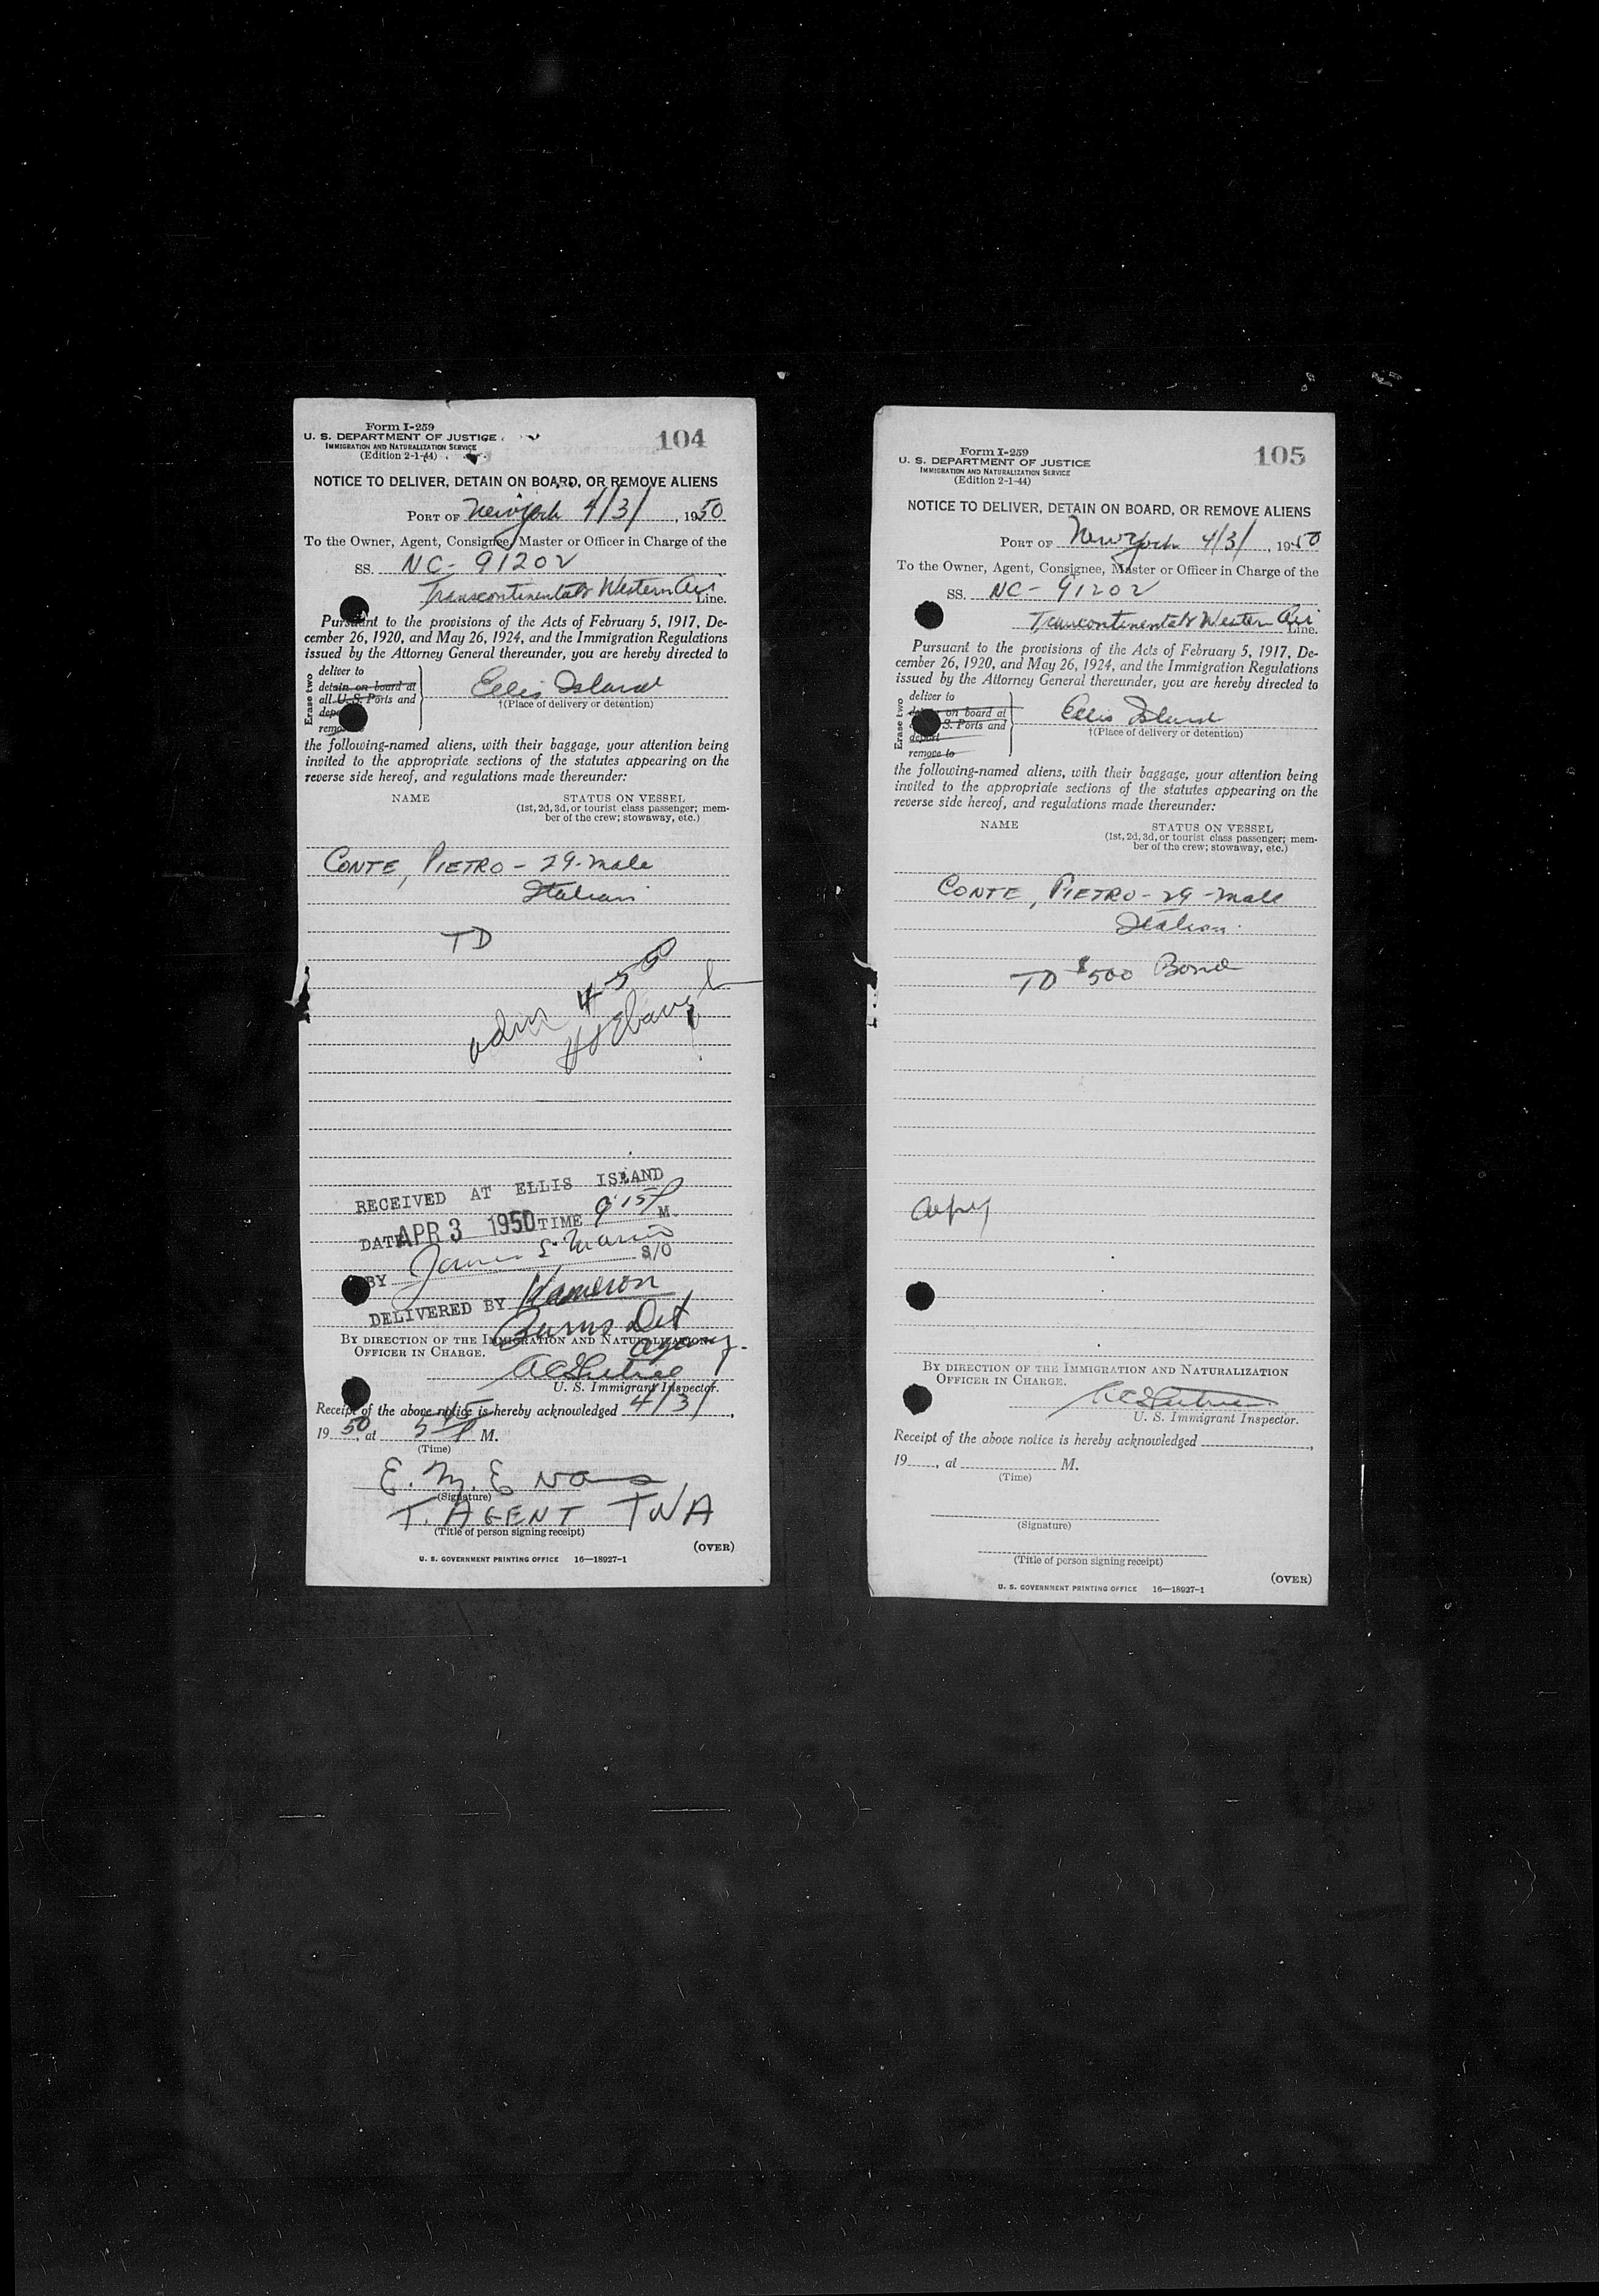 Form I-259
U. S. DEPARTMENT OF JUSTICE
IMMIGRATION AND NATURALIZATION SERVICE
(Edition 2-1-44)
104
NOTICE TO DELIVER, DETAIN ON BOARD, OR REMOVE ALIENS
PORT OF New York 4/3/, 1950
To the Owner, Agent, Consignee, Master or Officer in Charge of the
SS. NC-91202
Transcontinental & Western Air Line.
Pursuant to the provisions of the Acts of February 5, 1917, De-
cember 26, 1920, and May 26, 1924, and the Immigration Regulations
issued by the Attorney General thereunder, you are hereby directed to
Erase two
deliver to
detain on board at
all U. S. Ports and
Ellis Island
†(Place of delivery or detention)
the following-named aliens, with their baggage, your attention being
invited to the appropriate sections of the statutes appearing on the
reverse side hereof, and regulations made thereunder:
NAME STATUS ON VESSEL
(1st, 2d, 3d, or tourist class passenger; mem-
ber of the crew; stowaway, etc.)
CONTE, PIETRO - 29 - male
Italian
TD
adm 4-5-50
RECEIVED AT ELLIS ISLAND
DATE APR 3 1950 TIME 9 15 P M.
BY James S/O
DELIVERED BY Kameron
Burns Det
Agency.
BY DIRECTION OF THE IMMIGRATION AND NATURALIZATION
OFFICER IN CHARGE.
U. S. Immigrant Inspector.
Receipt of the above notice is hereby acknowledged 4/3/,
1950, at 5 45 P M.
(Time)
E. M. Evans
(Signature)
T. AGENT TWA
(Title of person signing receipt)
(OVER)
U. S. GOVERNMENT PRINTING OFFICE 16—18927-1
Form I-259
U. S. DEPARTMENT OF JUSTICE
IMMIGRATION AND NATURALIZATION SERVICE
(Edition 2-1-44)
105
NOTICE TO DELIVER, DETAIN ON BOARD, OR REMOVE ALIENS
PORT OF New York 4/3/, 1950
To the Owner, Agent, Consignee, Master or Officer in Charge of the
SS. NC-91202
Transcontinental & Western Air Line.
Pursuant to the provisions of the Acts of February 5, 1917, De-
cember 26, 1920, and May 26, 1924, and the Immigration Regulations
issued by the Attorney General thereunder, you are hereby directed to
Erase two
deliver to
on board at
S. Ports and
deport
remove to
Ellis Island
†(Place of delivery or detention)
the following-named aliens, with their baggage, your attention being
invited to the appropriate sections of the statutes appearing on the
reverse side hereof, and regulations made thereunder:
NAME STATUS ON VESSEL
(1st, 2d, 3d, or tourist class passenger; mem-
ber of the crew; stowaway, etc.)
CONTE, PIETRO - 29 - male
Italian
TD $500 Bond
BY DIRECTION OF THE IMMIGRATION AND NATURALIZATION
OFFICER IN CHARGE.
U. S. Immigrant Inspector.
Receipt of the above notice is hereby acknowledged ,
19 , at M.
(Time)
(Signature)
(Title of person signing receipt)
(OVER)
U. S. GOVERNMENT PRINTING OFFICE 16—18927-1